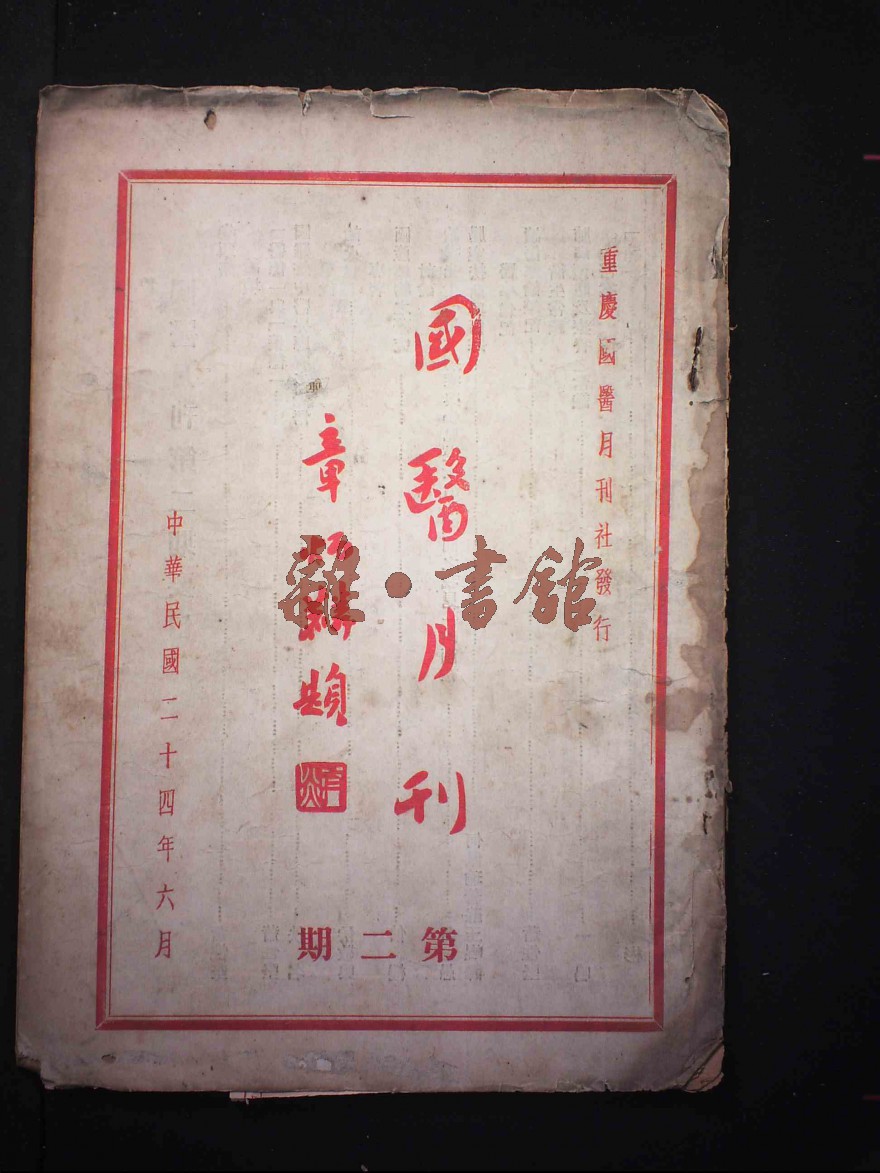 重慶國醫月刊社發行
國醫月刊
章炳麟題
中華民國二十四年六月
第二期
雜·書館